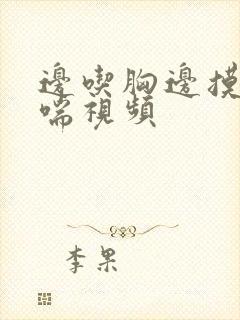 邊喫胸邊摸
喘視頻
李果